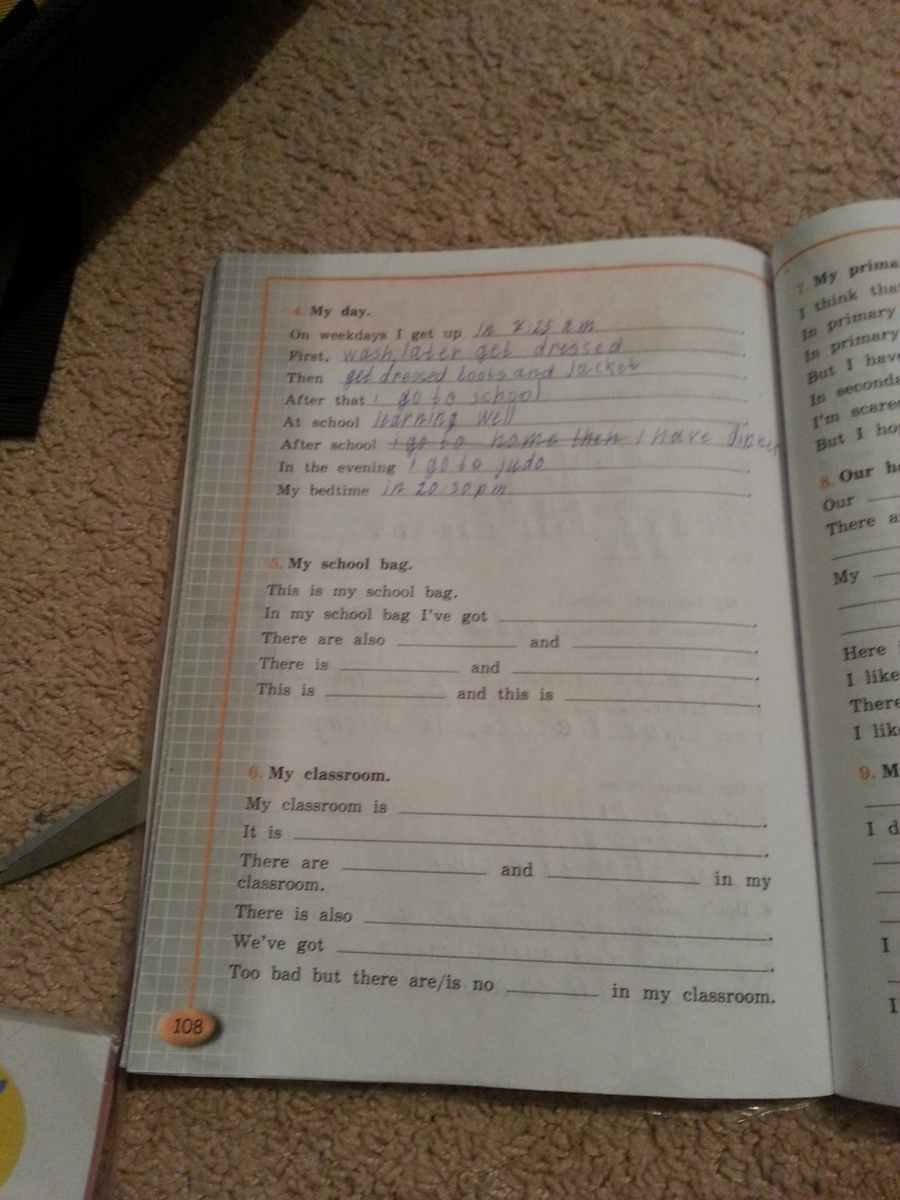 4. My day.
On weekdays I get up in 8:25 am.
First, wash, later get dressed.
Then get dressed boots and Jacket.
After that i go to school.
At school learning well.
After school i go to home then I have dinner
In the evening i go to judo.
My bedtime in 20:30 pm.
5. My school bag.
This is my school bag.
In my school bag I've got ____________.
There are also ____________ and ____________.
There is ____________ and ____________.
This is ____________ and this is ____________.
6. My classroom.
My classroom is ____________.
It is ____________.
There are ____________ and ____________ in my
classroom.
There is also ____________.
We've got ____________.
Too bad but there are/is no ________ in my classroom.
108
7. My prima
I think tha
In primary
In primary
But I have
In seconda
I'm scare
But I ho
8. Our h
Our
There a
My
Here
I like
There
I lik
9. M
I d
I
I